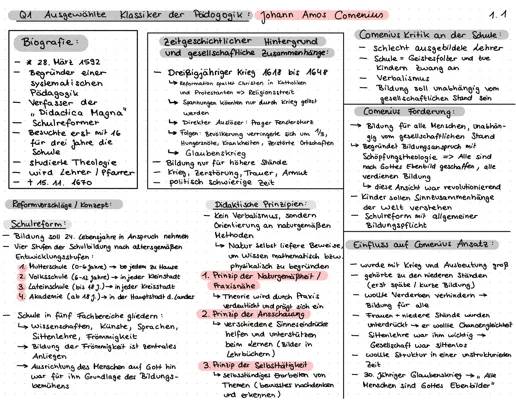 Q1 Ausgewählte Klassiker der Pädagogik: Johann Amos Comenius
1.1
Biografie:
* 28. März 1592
— Begründer einer
systematischen
Pädagogik
— Verfasser der
"Didactica Magna"
— Schulreformer
— Besuchte erst mit 16
für drei Jahre die
Schule
— studierte Theologie
— wird Lehrer / Pfarrer
† 15. 11. 1670
Zeitgeschichtlicher Hintergrund
und gesellschaftliche Zusammenhänge:
— Dreißigjähriger Krieg 1618 bis 1648
↳ Reformation spaltet Christen in Katholiken
und Protestanten => Religionsstreit
↳ Spannungen könnten nur durch Krieg gelöst
werden
↳ Direkter Auslöser: Prager Fenstersturz
↳ Folgen: Bevölkerung verringerte sich um 1/3,
Hungersnöte, Krankheiten, Zerstörte Ortschaften
↳ Glaubenskrieg
— Bildung nur für höhere Stände
— Krieg, Zerstörung, Trauer, Armut
— politisch schwierige Zeit
Comenius Kritik an der Schule:
— schlecht ausgebildete Lehrer
— Schule = Geistesfolter und übe
Kindern Zwang an
— Verbalismus
— Bildung soll unabhängig vom
gesellschaftlichen Stand sein
Comenius Forderung:
↳ Bildung für alle Menschen, unabhän-
gig vom gesellschaftlichen Stand
↳ Begründet Bildungsanspruch mit
Schöpfungstheologie => Alle sind
nach Gottes Ebenbild geschaffen, alle
verdienen Bildung
↳ diese Ansicht war revolutionierend
— Kinder sollen Sinnzusammenhänge
der Welt verstehen
— Schulreform mit allgemeiner
Bildungspflicht
Reformvorschläge / Konzept:
Schulreform:
— Bildung soll 24. Lebensjahre in Anspruch nehmen
— Vier Stufen der Schulbildung nach altersgemäßen
Entwicklungsstufen:
1. Mutterschule (0-6 Jahre) → bei jedem zu Hause
2. Volksschule (6-12 Jahre) → in jeder Kleinstadt
3. Lateinschule (bis 18 J.) → in jeder Kreisstadt
4. Akademie (ab 18 J.) → in der Hauptstadt d. Landes
— Schule in fünf Fachbereiche gliedern:
↳ Wissenschaften, Künste, Sprachen,
Sittenlehre, Frömmigkeit
↳ Bildung der Frömmigkeit ist zentrales
Anliegen
↳ Ausrichtung des Menschen auf Gott hin
war für ihn Grundlage des Bildungs-
bemühens
Didaktische Prinzipien:
— Kein Verbalismus, sondern
Orientierung an naturgemäßen
Methoden
↳ Natur selbst liefere Beweise,
um Wissen mathematisch bzw.
physikalisch zu begründen
1. Prinzip der Naturgemäßheit /
Praxisnähe
↳ Theorie wird durch Praxis
verdeutlicht und prägt sich ein
2. Prinzip der Anschauung
↳ verschiedene Sinneseindrücke
helfen und unterstützen
beim Lernen (Bilder in
Lehrbüchern)
3. Prinzip der Selbsttätigkeit
↳ selbstständiges Erarbeiten von
Themen (bewusstes nachdenken
und erkennen)
Einfluss auf Comenius Ansatz:
— wurde mit Krieg und Ausbeutung groß
— gehörte zu den niederen Ständen
(erst späte / kurze Bildung)
— wollte Verderben verhindern →
Bildung für alle
— Frauen + niedere Stände wurden
unterdrückt → er wollte Chancengleichheit
— Sittenlehre war ihm wichtig →
Gesellschaft war sittenlos
— wollte Struktur in einer unstrukturierten
Zeit
— 30. jähriger Glaubenskrieg → "Alle
Menschen sind Gottes Ebenbilder"